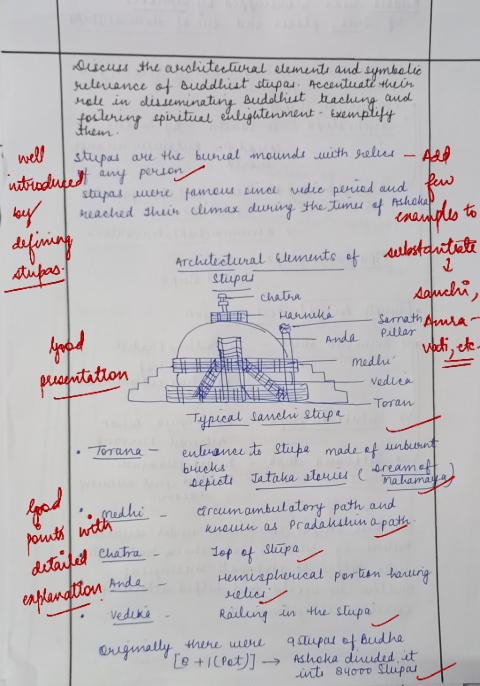 Discuss the architectural elements and symbolic
relevance of Buddhist stupas. Accentuate their
role in disseminating Buddhist teaching and
fostering spiritual enlightenment. Exemplify
them.
well
introduced
by
defining
stupas.
Stupas are the burial mounds with relics
of any person
Stupas were famous since vedic period and
reached their climax during the times of Ashoka
- Add
few
examples to
substantiate
↓
Sanchi,
Amra-
vati, etc.
Architectural Elements of
Stupas
Chatra
Harnika
Sarnath
Pillar
Anda
Medhi
Vedica
Toran
Typical Sanchi Stupa
Good
presentation
• Torana - enterance to Stupa made of unburnt
bricks
Depicts Jataka stories (Dream of
Mahamaya)
• Medhi - Circumambulatory path and
known as Pradakshina path.
• Chatra - Top of Stupa
• Anda - Hemispherical portion having
relics
• Vedika - Railing in the Stupa
Good
points with
detailed
explanation
Originally there were 9 stupas of Budha
[8 + 1 (Pot)] → Ashoka divided it
into 84000 Stupas